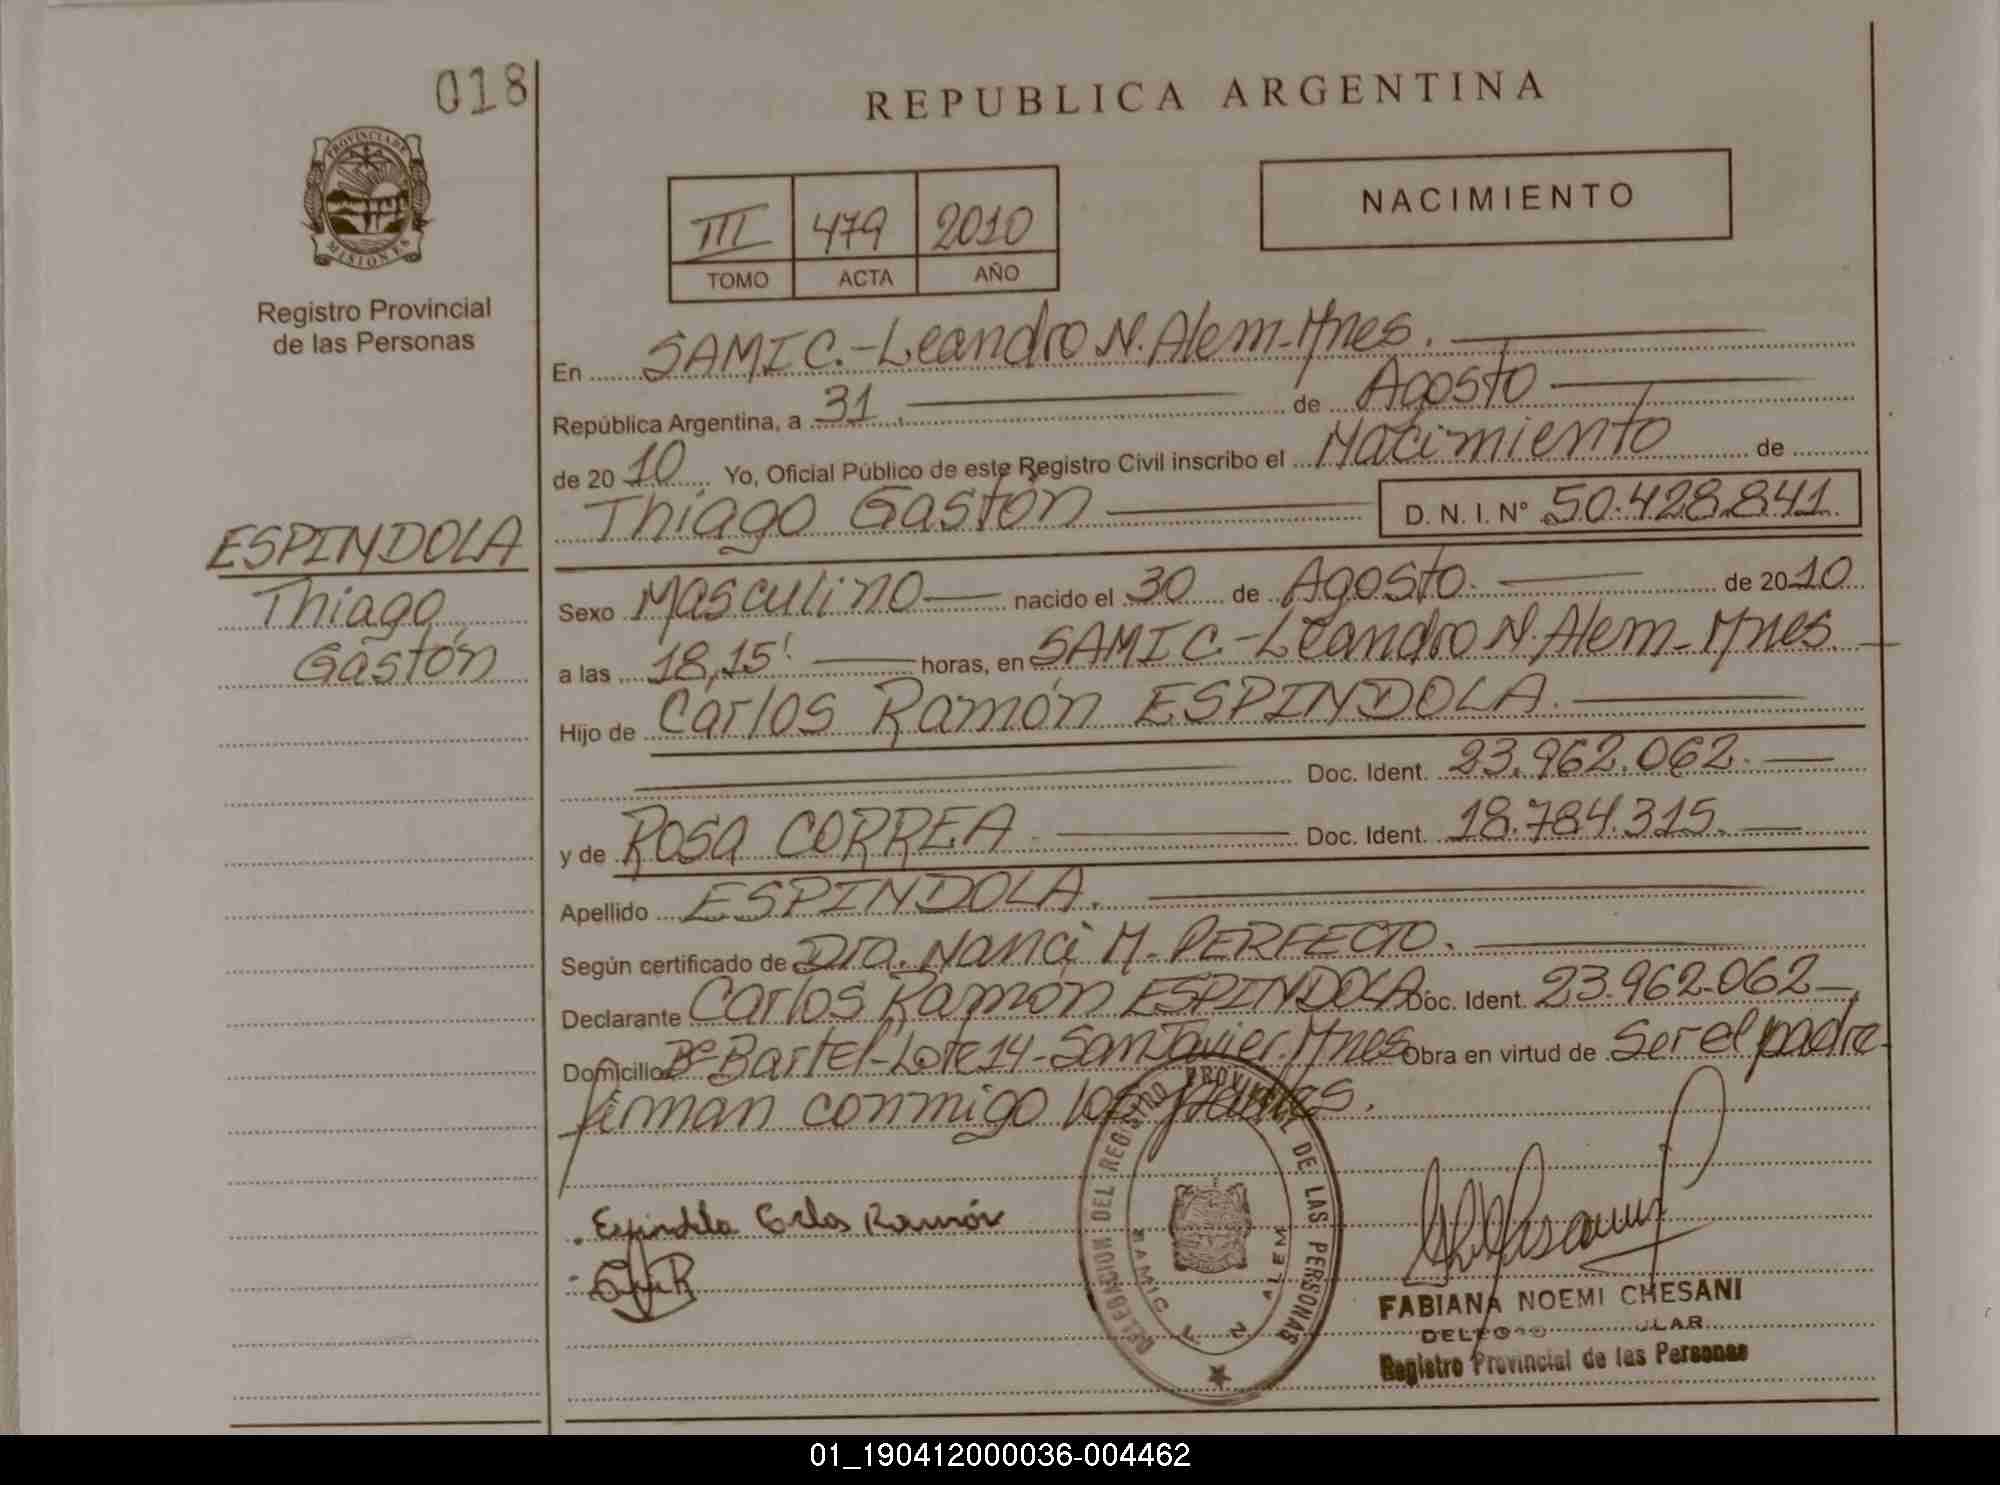 018
REPUBLICA ARGENTINA
PROVINCIA DE
MISIONES
Registro Provincial
de las Personas
III 479 2010
TOMO ACTA AÑO
NACIMIENTO
En SAMIC.-Leandro N. Alem-Mnes.
República Argentina, a 31 de Agosto
de 2010 Yo, Oficial Público de este Registro Civil inscribo el Nacimiento de
Thiago Gastón D. N. I. N° 50.428.841.
ESPINDOLA
Thiago
Gastón
Sexo Masculino nacido el 30 de Agosto. de 2010
a las 18,15' horas, en SAMIC.-Leandro N. Alem-Mnes.
Hijo de Carlos Ramón ESPINDOLA.
Doc. Ident. 23.962.062.
y de ROSA CORREA. Doc. Ident. 18.784.315.
Apellido ESPINDOLA.
Según certificado de Dra. Nanci M. PERFECTO.
Declarante Carlos Ramón ESPINDOLA Doc. Ident. 23.962.062
Domicilio Bº Bartel-Lote 14-San Javier. Mnes Obra en virtud de Ser el padre-
firman conmigo los padres.
Espindola Carlos Ramón
DELEGACION DEL REGISTRO PROVINCIAL DE LAS PERSONAS
SAMIC L N ALEM
FABIANA NOEMI CHESANI
Registro Provincial de las Personas
01_190412000036-004462